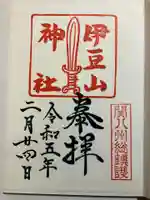 関八州総鎮護
伊豆山
神社
奉拝
令和五年
二月廿四日